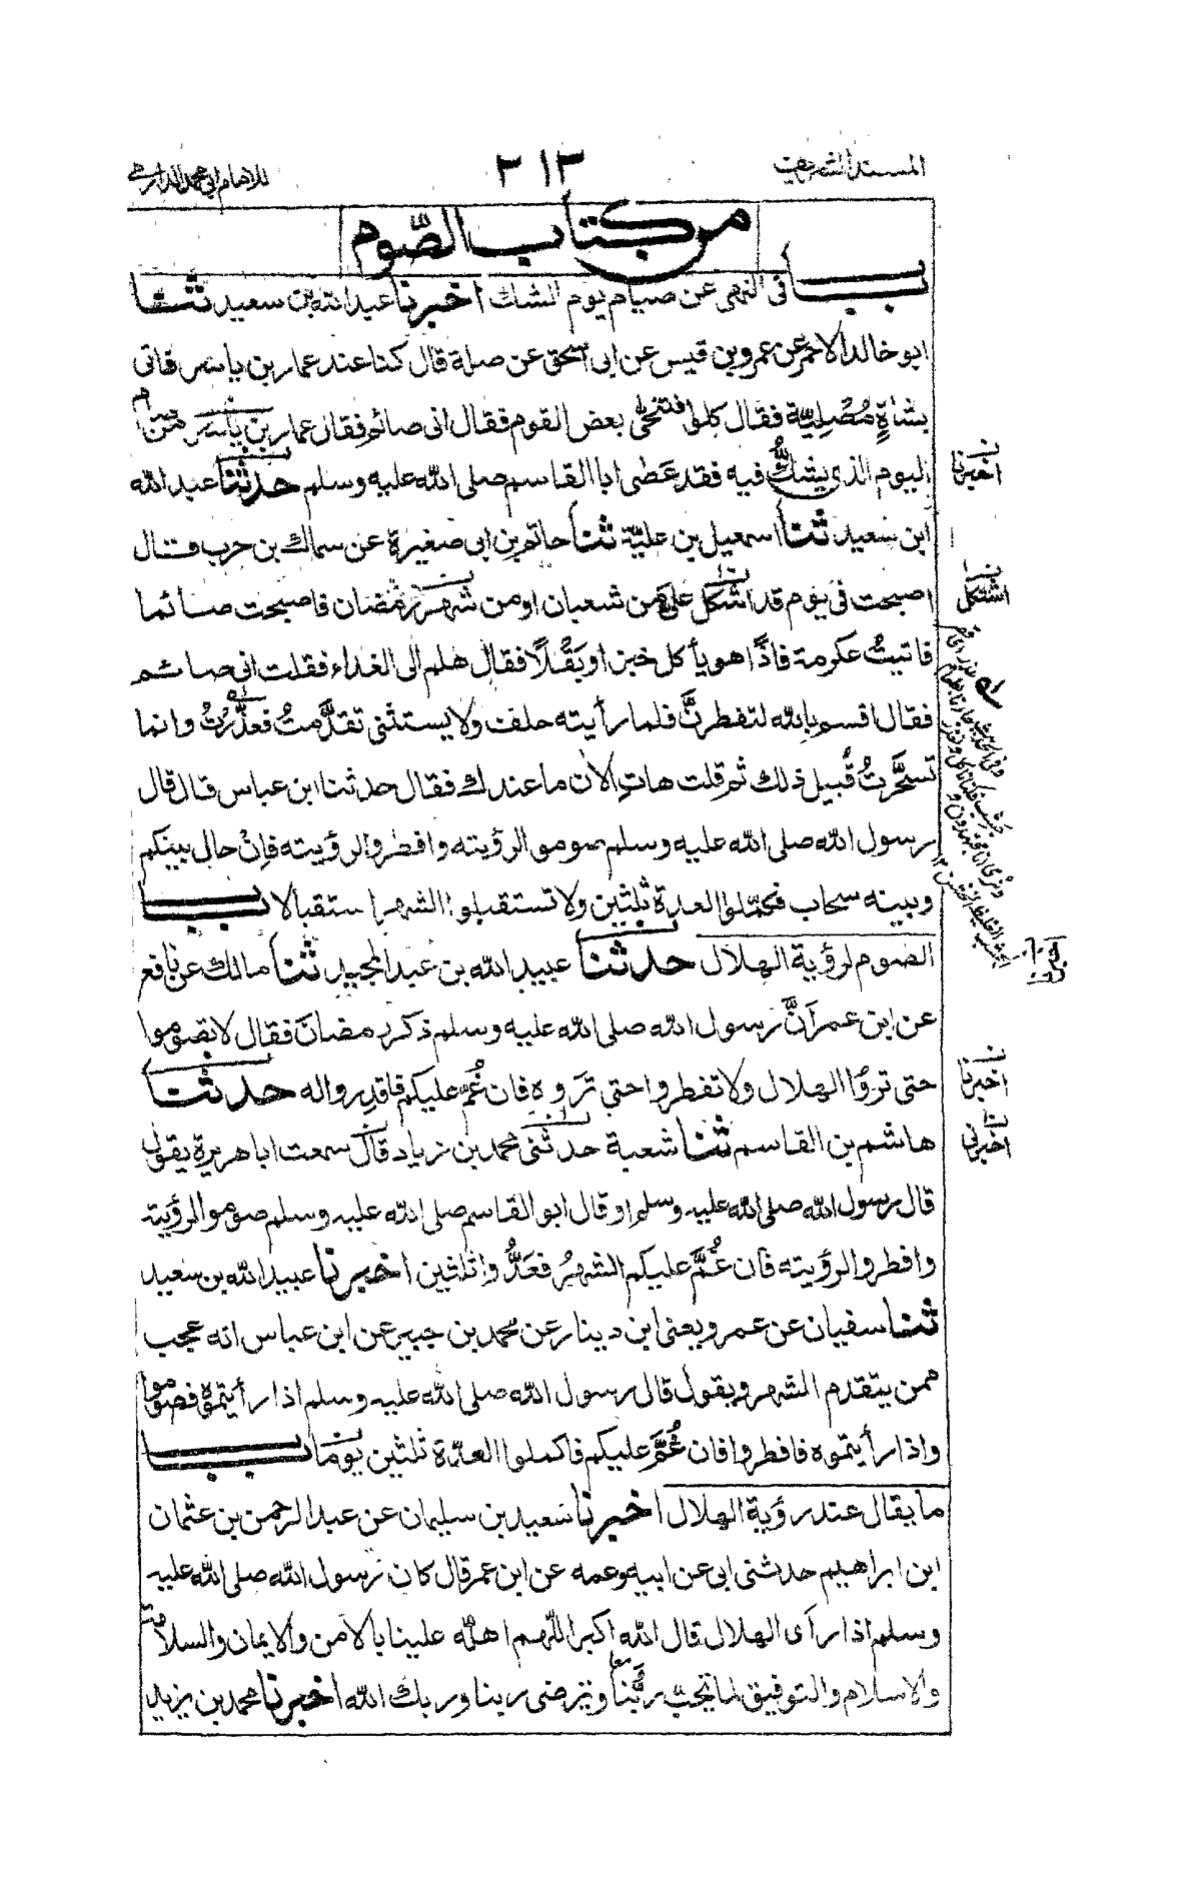 المسند الشريف
٢١٣
للامام ابي محمد الدارمي
من كتاب الصّوم
باب في النهي عن صيام يوم الشك اخبرنا عبد الله بن سعيد ثنا
ابو خالد الاحمر عن عمرو بن قيس عن ابي اسحق عن صلة قال كنا عند عمار بن ياسر فاتي
بشاةٍ مُصْلِيّة فقال كلوا فتنحّٰى بعض القوم فقال اني صائم فقال عمار بن ياسر من صام
اليوم الذي يشكُّ فيه فقد عَصٰى ابا القاسم صلى الله عليه وسلم حدثنا عبد الله
ابن سعيد ثنا اسمعيل بن عليّة ثنا حاتم بن ابي صغيرة عن سماك بن حرب قال
اصبحت في يوم قد اشكل عليّ من شعبان او من شهر رمضان فاصبحت صائما
فاتيتُ عكرمة فاذًا هو يأكل خبز او بَقْلًا فقال هلم الى الغداء فقلت اني صائم
فقال اقسم بالله لتفطرنَّ فلما رأيته حلف ولا يستثني تقدَّمتُ فعذَّرْتُ وانما
تسحَّرتُ قُبيل ذلك ثم قلت هاتِ الآن ما عندك فقال حدثنا ابن عباس قال قال
رسول الله صلى الله عليه وسلم صوموا لرؤيته وافطروا لرؤيته فإنْ حال بينكم
وبينه سحاب فكمّلوا العدة ثلثين ولا تستقبلوا الشهر استقبالا باب
الصوم لرؤية الهلال حدثنا عبيد الله بن عبد المجيد ثنا مالك عن نافع
عن ابن عمر اَنَّ رسول الله صلى الله عليه وسلم ذكر رمضانَ فقال لا تصوموا
حتى تروُا الهلال ولا تفطروا حتى تَروه فان غُمَّ عليكم فاقدِروا له حدثنا
هاشم بن القاسم ثنا شعبة حدثني محمد بن زياد قال سمعت ابا هريرة يقول
قال رسول الله صلى الله عليه وسلم او قال ابو القاسم صلى الله عليه وسلم صوموا لرؤيته
وافطروا لرؤيته فان غُمَّ عليكم الشهرُ فعَدُّوا ثلثين اخبرنا عبيد الله بن سعيد
ثنا سفيان عن عمرو يعني ابن دينار عن محمد بن جبير عن ابن عباس انه عجب
ممن يتقدم الشهر ويقول قال رسول الله صلى الله عليه وسلم اذا رأيتموه فصوموا
واذا رأيتموه فافطروا فان غُمَّ عليكم فاكملوا العدّة ثلثين يوما باب
ما يقال عند رؤية الهلال اخبرنا سعيد بن سليمان عن عبد الرحمن بن عثمان
ابن ابراهيم حدثني ابي عن ابيه وعمه عن ابن عمر قال كان رسول الله صلى الله عليه
وسلم اذا رأى الهلال قال الله اكبر اللّٰهم اهلّه علينا بالامن والايمان والسلامة
والاسلام والتوفيق لما تحبّ ربَّنا وترضى ربنا وربك الله اخبرنا محمد بن يزيد
اخبرنا
اشتكل
اخبرنا
اخبرني